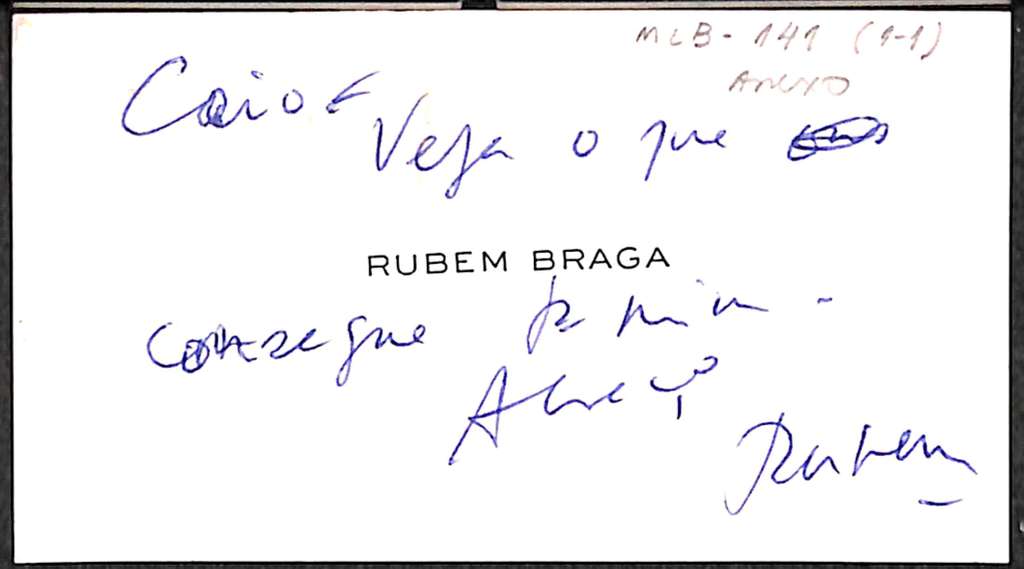 MLB-141 (1-1)
Anexo
Caio
Veja o que
RUBEM BRAGA
consegue p mim.
Abraço
Rubem